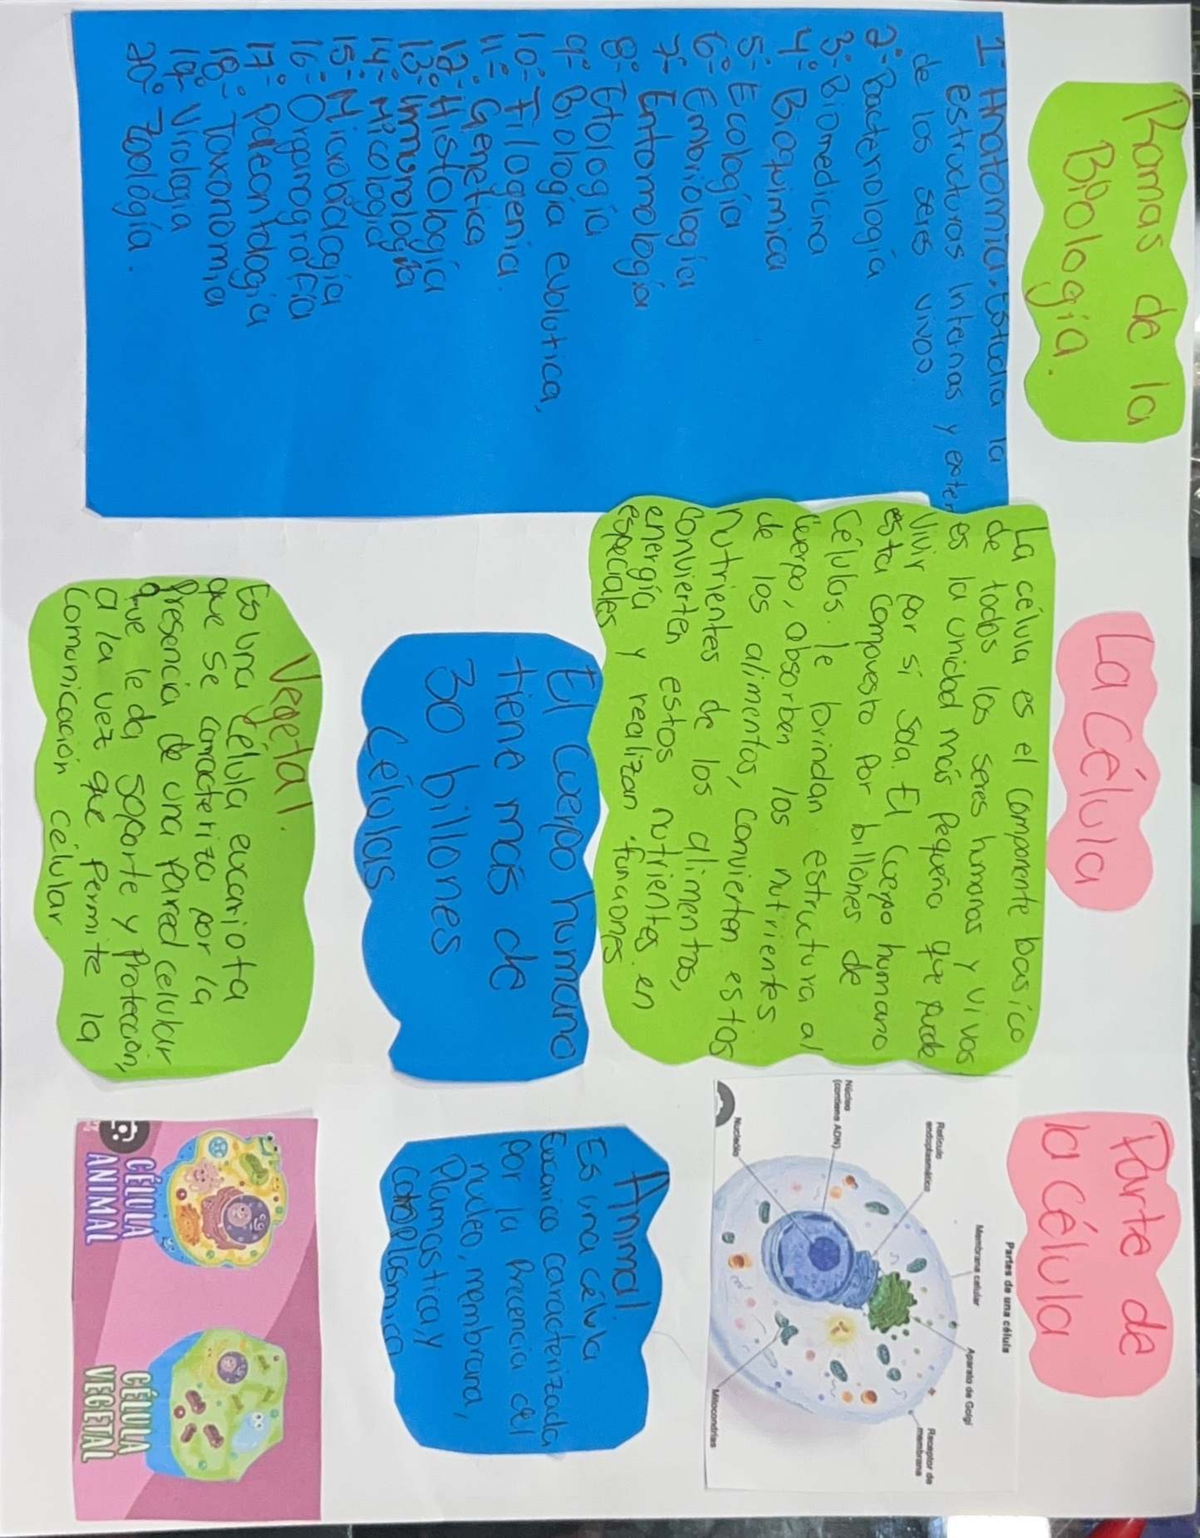 Ramas de la
Biología.
1- Anatomia: Estudia la
estructuras internas y exter
de los seres vivos.
2- Bacteriología
3- Biomedicina
4- Bioquimica
5- Ecología
6- Embriología
7- Entomología
8- Etología
9- Biología evolutica,
10- Filogenia.
11- Genetica
12- Histología
13- inmunología
14- Micología
15- Microbiología
16- Organografía
17- Paleontología
18- Taxonomia
19- Virología
20- Zoología.
La célula
La célula es el componente basico
de todos los seres humanos y vivos
es la unidad más pequeña que puede
vivir por si sola. El cuerpo humano
esta compuesto por billones de
células. le brindan estructura al
cuerpo, absorben los nutrientes
de los alimentos, convierten estos
nutrientes de los alimentos,
convierten estos nutrientes en
energía y realizan funciones
especiales
El cuerpo humano
tiene mas de
30 billones
células
Vegetal.
Es una célula eucariota
que se caracteriza por la
Presencia de una pared celular
que le da soporte y Protección,
a la vez que permite la
comunicación célular
Parte de
la célula
Partes de una célula
Membrana celular
Aparato de Golgi
Retículo
endoplasmático
Receptor de
membrana
Núcleo
(contiene ADN)
Nucleólo
Mitocondrias
Animal
Es una célula
Eucarica caracterizada
por la Precencia del
nucleo, membrana,
Plamastica y
CÉLULA
ANIMAL
CÉLULA
VEGETAL